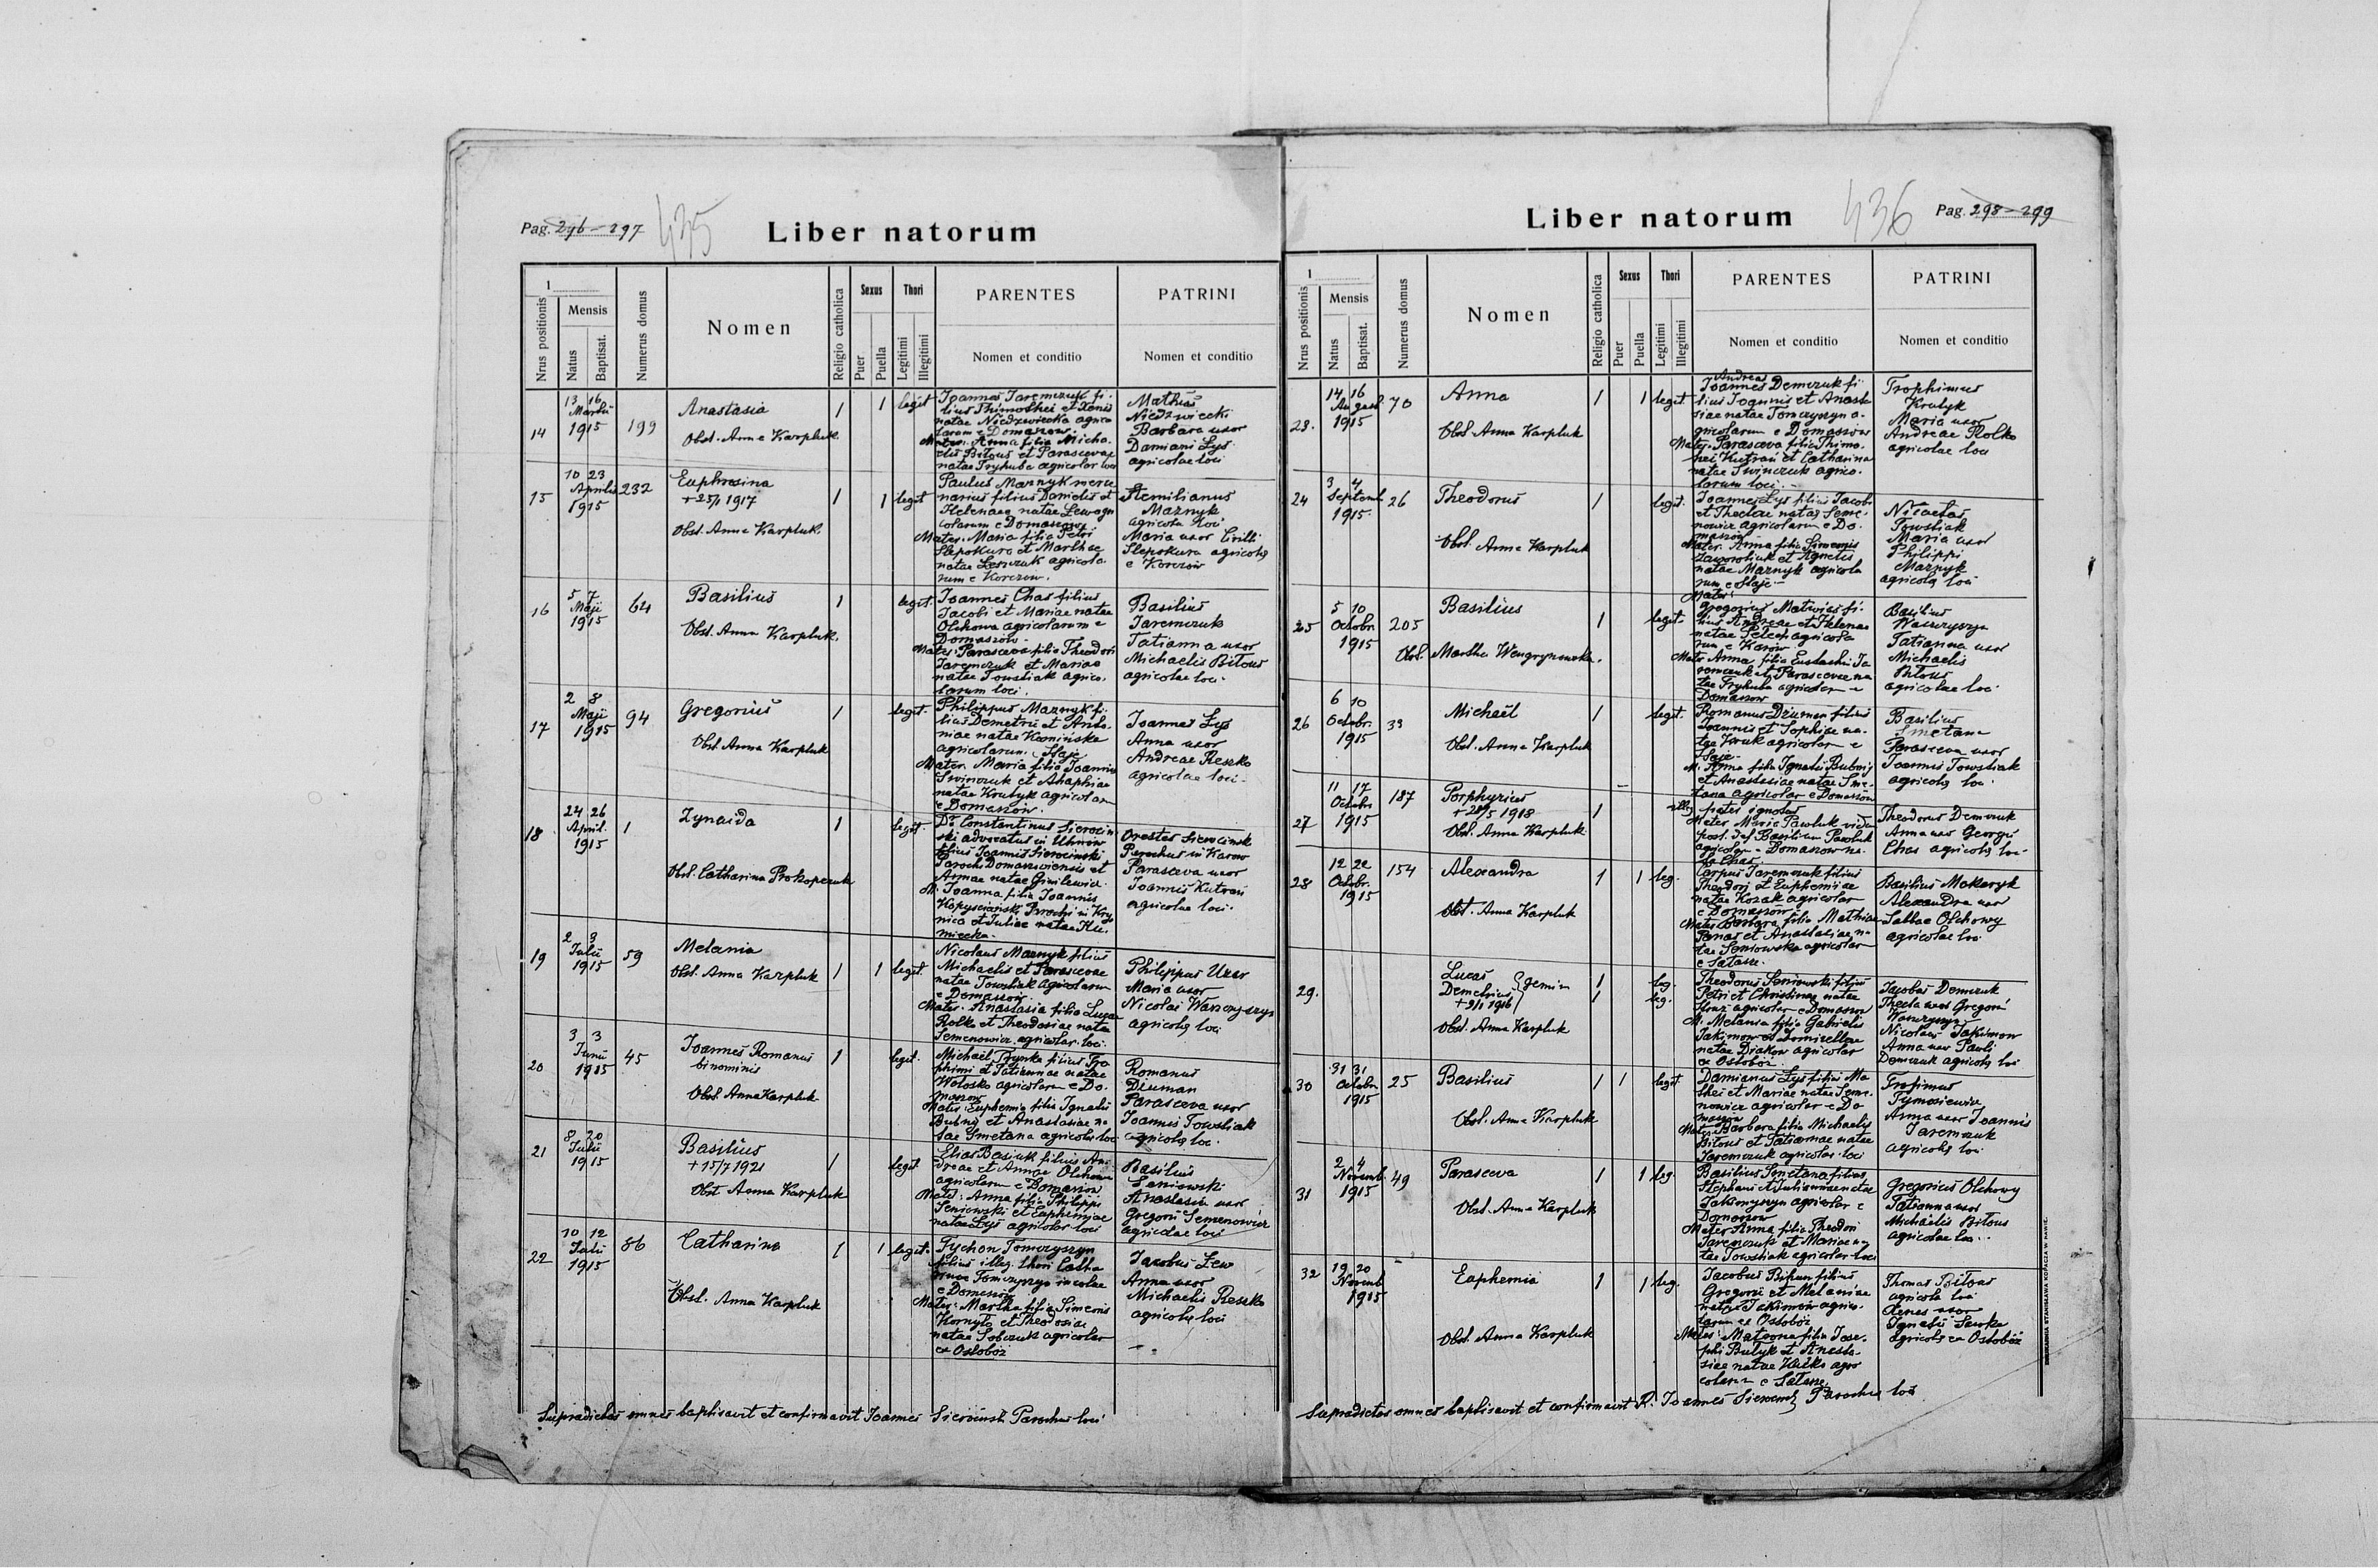 Pag. 296-297 435
Liber natorum
1
Nrus positionis
Mensis
Natus
Baptisat.
Numerus domus
Nomen
Religio catholica
Sexus
Puer
Puella
Thori
Legitimi
Illegitimi
PARENTES
Nomen et conditio
PATRINI
Nomen et conditio
14
13 16
Martii
1915
199
Anastasia
Obst. Anna Karpluk
1
1
legit
Joannes Jaremczuk fi-
lius Thimothei et Xenis
natae Niedzwiecka agrico
larum e Domaszow.
Mater. Anna filia Micha-
elis Bitous et Parascevae
natae Tryhuba agricolar loci
Mathias
Niedzwiecki
Barbara uxor
Damiani Lys
agricolae loci
15
10 23
Aprilis
1915
232
Euphrosina
+ 25/1 1917
Obst. Anna Karpluk
1
1
legit
Paulus Maznyk merce
narius filius Danielis et
Helenae natae Lew agri
colarum e Domaszow
Mater. Maria filia Petri
Slepokura et Marthae
natae Leszczuk agricola-
rum e Korczow.
Aemilianus
Maznyk
agricola loci
Maria uxor Cirilli
Slepokura agricolę
e Korczow
16
5 7
Maji
1915
64
Basilius
Obst. Anna Karpluk.
1
legit.
Joannes Chas filius
Jacobi et Mariae natae
Olchowa agricolarum e
Domaszow.
Mater: Parasceva filia Theodori
Jaremczuk et Mariae
natae Towstiak agrico-
larum loci.
Basilius
Jaremczuk
Tatianna uxor
Michaelis Bitous
agricolae loci.
17
2 8
Maji
1915
94
Gregorius
Obst. Anna Karpluk
1
legit.
Philippus Maznyk fi-
lius Demetrii et Anto-
niae natae Kaminska
agricolarum e Staje
Mater. Maria filia Joannis
Swinczuk et Ahaphiae
natae Krutyk agricolar
e Domaszow.
Joannes Lys
Anna uxor
Andreae Reszko
agricolae loci.
18
24 26
April.
1915
1
Zynaida
Obst. Catharina Prokopczuk
1
legit.
Dr Constantinus Sierocin
ski advocatus in Uhnow
filius Joannis Sierocinski
Paroch Domaszoviensis et
Annae natae Giniłewicz.
M. Joanna filia Joannis
Kopyscianski Parochi in Kry
nica et Juliae natae
Orestes Sierocinsk
Parochus in Karow
Parasceva uxor
Joannis Kutran
agricolae loci.
19
2 3
Julii
1915
59
Melania
Obst. Anna Karpluk
1
1
legit.
Nicolaus Maznyk filius
Michaelis et Parascevae
natae Towstiak agricolarum
e Domaszow.
Mater. Anastasia filia Lucae
Rolko et Theodosiae natae
Semenowicz agricolar. loci.
Philippus Uzar
Maria uxor
Nicolai Wawryszyn
agricolę loci
20
3 3
Junii
1915
45
Joannes Romanus
binominis
Obst. Anna Karpluk
1
legit.
Michael Hrynka filius Tro
phimi et Tatiannae natae
Wołosko agricolarum e Do-
maszow
Mater: Euphemia filia Ignatii
Bubnij et Anastasiae na
tae Smetana agricolę loc
Romanus
Dziuman
Parasceva uxor
Joannis Towstiak
agricolę loc.
21
8 20
Julii
1915
Basilius
+ 15/7 1921
Obst Anna Karpluk
1
legit
Elias Basiuk filius An-
dreae et Annae Olchowa
agricolarum e Domaszow
Mater: Anna filia Philippi
Seniowski et Euphemiae
natae Lys agricolar loci
Basilius
Seniowski
Anastasia uxor
Gregorii Semenowicz
agricolae loci
22
10 12
Julii
1915
86
Catharina
Obst. Anna Karpluk
1
1
legit.
Tychon Tomczyszyn
filius illeg. thori Catha
rinae Tomczyszyn incolae
e Domaszow
Mater: Martha filia Simeonis
Kornylo et Theodosiae
natae Sobczuk agricolar
ex Ostobóż
Jacobus Lew
Anna uxor
Michaelis Reszko
agricolę loci
Supradictos omnes baptisavit et confirmavit Joannes Sierocinski Parochus loci
Liber natorum
436 Pag. 298-299
1
Nrus positionis
Mensis
Natus
Baptisat.
Numerus domus
Nomen
Religio catholica
Sexus
Puer
Puella
Thori
Legitimi
Illegitimi
PARENTES
Nomen et conditio
PATRINI
Nomen et conditio
23.
14 16
August
1915
70
Anna
Obst Anna Karpluk
1
1
legit
Andreas
Joannes Demczuk fi-
lius Joannis et Anasta
siae natae Tomczyszyn a-
gricolarum e Domaszow
Mater. Parasceva filia Thimo-
thei Kutran et Catharinae
natae Swinczuk agrico-
larum loci.
Trophimus
Krutyk
Maria uxor
Andreae Rolko
agricolae loci
24
3 4
Septemb
1915.
26
Theodorus
Obst. Anna Karpluk
1
legit.
Joannes Lys filius Jacobi
et Theclae natae Seme-
nowicz agricolarum e Do-
maszow
Mater. Anna filia Simeonis
Jaworotiuk et Agnetis
natae Maznyk agricola
rum e Staje
Nicaetas
Towstiak
Maria uxor
Philippi
Maznyk
agricolę loci
25
5 10
Octobr.
1915
205
Basilius
Obst. Martha Wengrynowska.
1
legit.
Mater:
Gregorius Matwias fi-
lius Andreae et Helenae
natae Pelech agricola
rum e Karow
Mater Anna filia Eustachii Ja
remczuk et Parascevae na
tae Tryhuba agricolar e
Domaszow
Basilius
Wawryszyn
Tatianna uxor
Michaelis
Bitous
agricolae loc.
26
6 10
Octobr.
1915
33
Michaël
Obst. Anna Karpluk
1
legit.
Romanus Dziuman filius
Joannis et Sophiae na-
tae Kruk agricolar e
Staje
M. Anna filia Ignatii Bubnij
et Anastasiae natae Sme-
tana agricolar e Domaszow
Basilius
Smetana
Parasceva uxor
Joannis Towstiak
agricolę loci
27
11 17
Octobr.
1915
187
Porphyrius
+ 20/5 1918
Obst. Anna Karpluk
1
illeg
pater ignotus
Mater Maria Pawluk vidua
post def. Basilium Pawluk
agricolar e Domaszow na-
ta Chas
Theodorus Demczuk
Anna uxor Georgii
Chas agricolę loci
28
12 22
Octobr.
1915
154
Alexandra
Obst. Anna Karpluk
1
1
leg.
Carpus Jaremczuk filius
Theodori et Euphemiae
natae Kozak agricolar
e Domaszow
Mater Barbara filia Mathiae
Panas et Anastasiae na-
tae Seniowska agricolar
e Tatarze.
Basilius Makaryk
Alexandra uxor
Sabbae Olchowy
agricolae loci
29.
Lucas
Demetrius } gemini
+ 9/1 1916
Obst. Anna Karpluk
1
1
leg.
leg.
Theodorus Seniowski filius
Petri et Christinae natae
agricolar e Domaszow
M. Melania filia Gabrielis
Jakimow et Domicellae
natae Diakow agricolar
ex Ostobóż
Jacobus Demczuk
Thecla uxor Gregorii
Wawryszyn
Nicolaus Jakimow
Anna uxor Pauli
Demczuk agricolę loci
30
31 31
Octobr.
1915
25
Basilius
Obst. Anna Karpluk
1
1
legit.
Damianus Lys filius Ma
thei et Mariae natae Seme-
nowicz agricolar e Do
maszow
Mater Barbara filia Michaelis
Bitous et Tatiannae natae
Jaremczuk agricolar. loci
Trofimus
Tymosiewicz
Anna uxor Joannis
Jaremczuk
agricolę loci
31
2 4
Novemb.
1915
49
Parasceva
Obst. Anna Karpluk
1
1
leg.
Basilius Smetana filius
Stephani et Juliannae natae
agricolar e
Domaszow
Mater Anna filia Theodori
Jaremczuk et Mariae na-
tae Towstiak agricolar loci
Gregorius Olchowy
Tatianna uxor
Michaelis Bitous
agricolae loc..
32
19 20
Novemb
1915
-
Euphemia
Obst. Anna Karpluk
1
1
leg.
Jacobus Bihun filius
Gregorii et Melaniae
natae Jakimow agrico-
larum ex Ostobóż
Mater: Matrona filia Jose-
phi Butyk et Anasta-
siae natae Halko agri
colarum e Tatarze
Thomas Bitous
agricola loci
Xenes uxor
Ignatii Sawka
agricolę ex Ostobóż
Supradictos omnes baptisavit et confirmavit R. Joannes Sierocinski Parochus loci
DRUKARNIA STANISŁAWA KOPACZA W RAWIE.